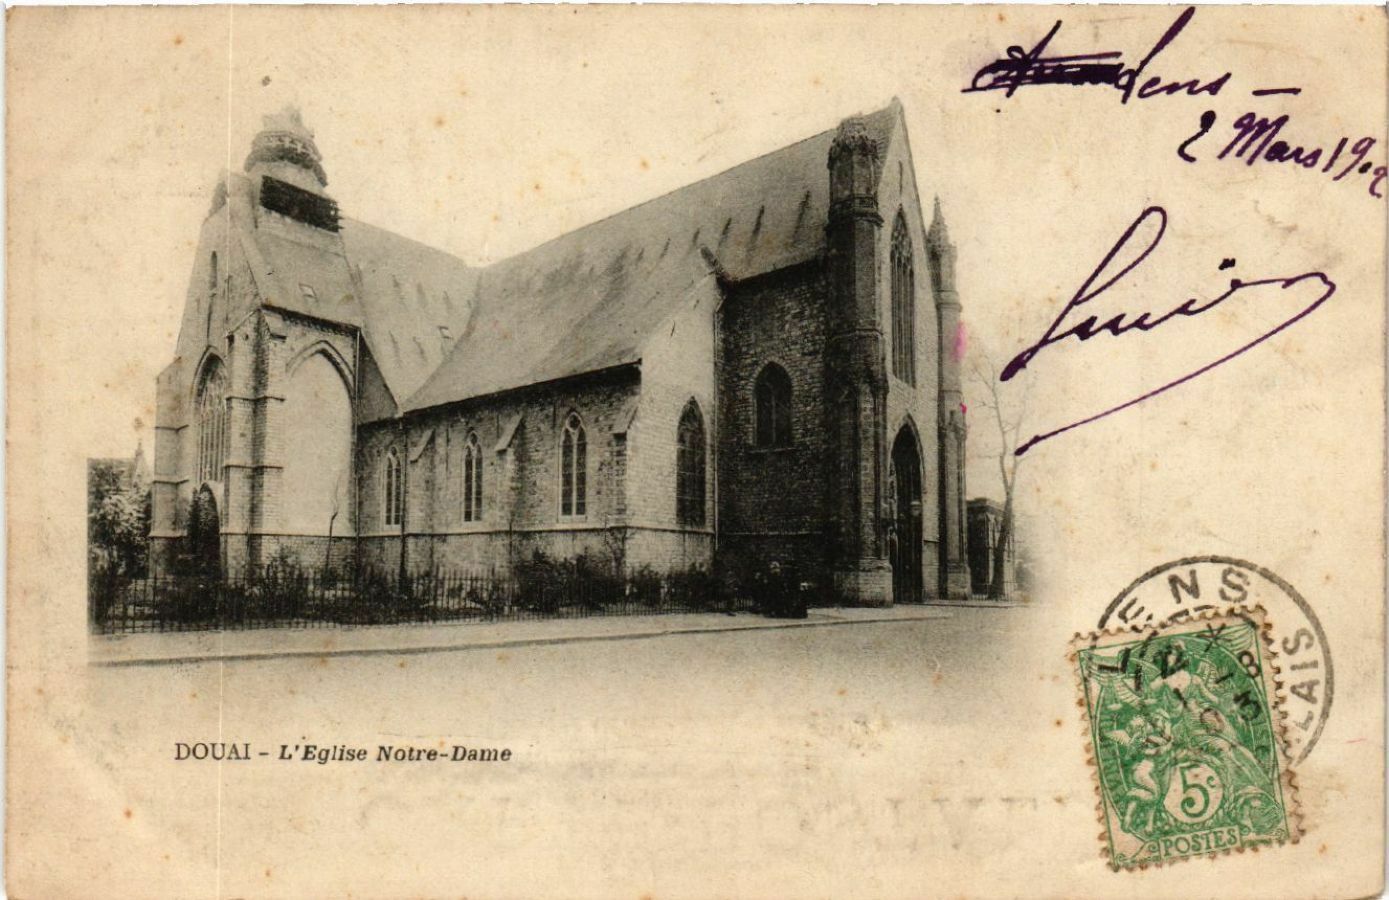 Lens -
2 Mars 1902
DOUAI - L'Eglise Notre-Dame
LENS
5c
POSTES